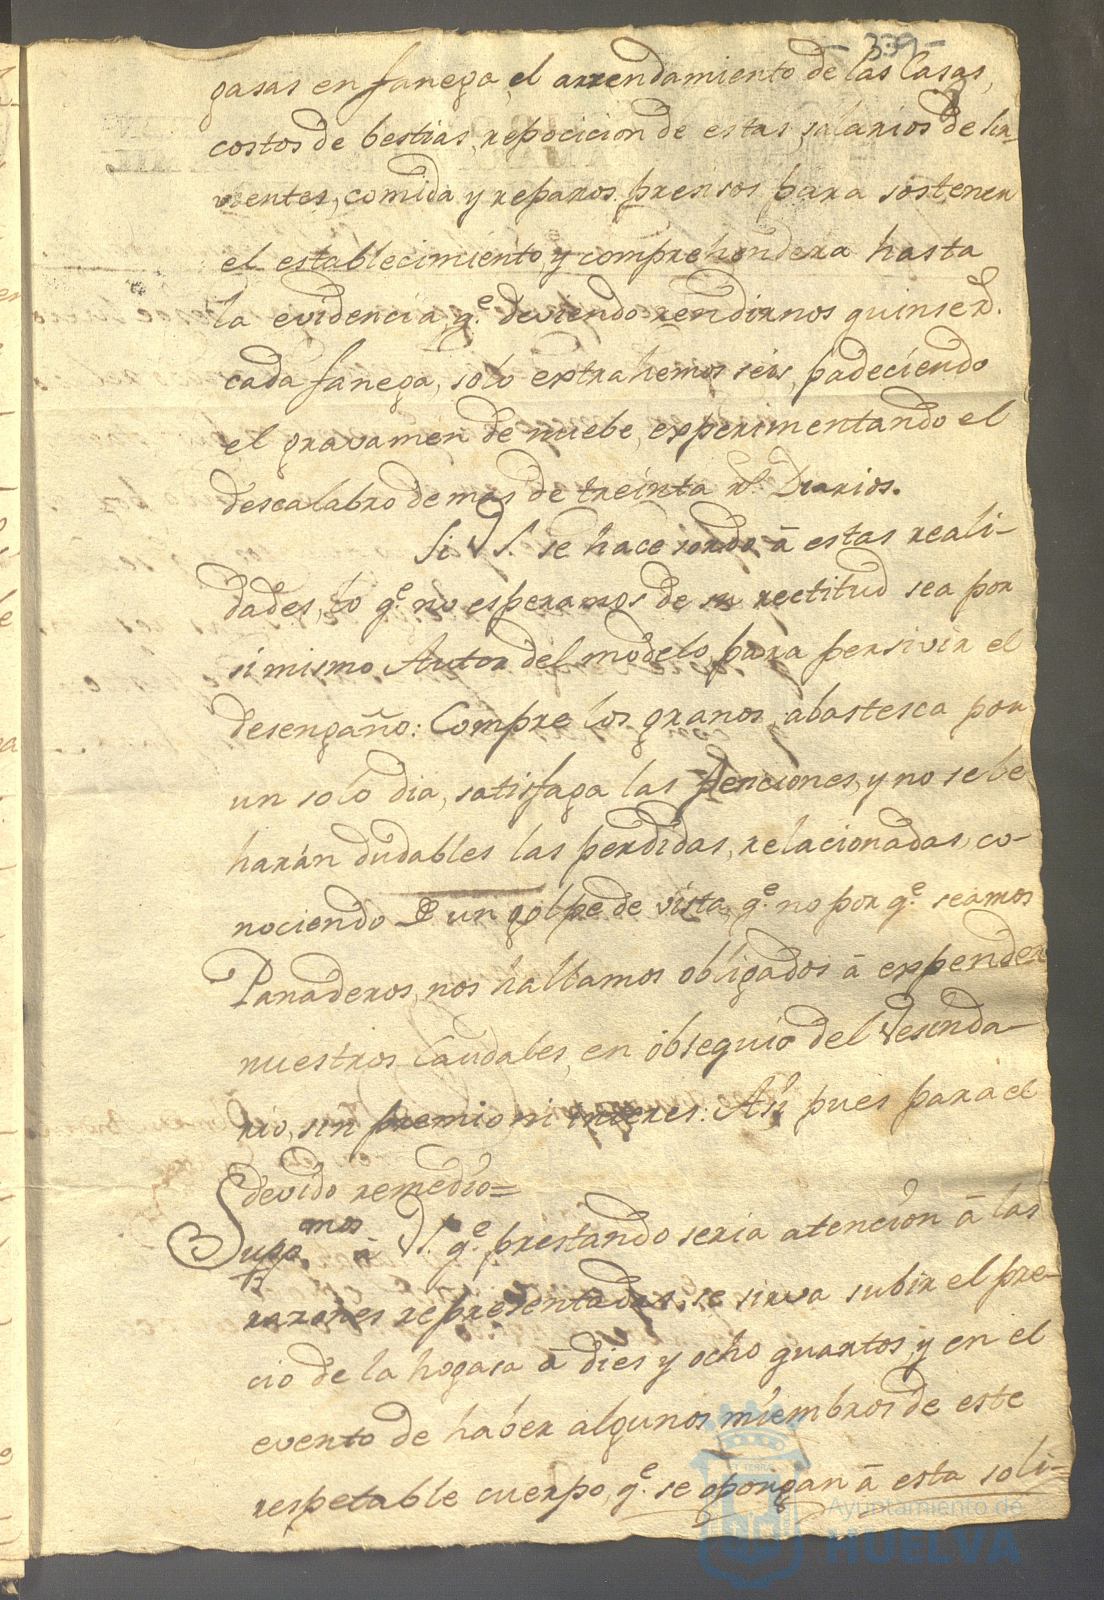 - 339 -
gasas en fanega, el arrendamiento de las Casas,
costos de bestias, repocicion de estas, salarios de sir-
vientes, comida y reparos presisos para sostener
el establecimiento, y comprehendera hasta
la evidencia, q.e deviendo rendirnos quinse rs.
cada fanega, solo extrahemos seis, padeciendo
el gravamen de nuebe, experimentando el
descalabro de mas de treinta rs. Diarios.
Si V.S. se hace sordo á estas reali-
dades, lo q.e no esperamos de su rectitud sea por
si mismo Autor del modelo, para persivir el
desengaño: Compre los granos, abastesca por
un solo dia, satisfaga las penciones, y no se le
harán dudables las perdidas, relacionadas, co-
nociendo de un golpe de vista, q.e no por q.e seamos
Panaderos, nos hallamos obligados á expender
nuestros Caudales, en obsequio del Vesinda-
rio, sin premio ni interes: Asi pues para el
devido remedio=
Supp.mos á V.S. q.e prestando seria atencion á las
razones representadas, se sirva subir el pre-
cio de la hogasa á dies y ocho quartos, y en el
evento de haber algunos miembros de este
respetable cuerpo, q.e se opongan á esta soli-
Ayuntamiento de
HUELVA